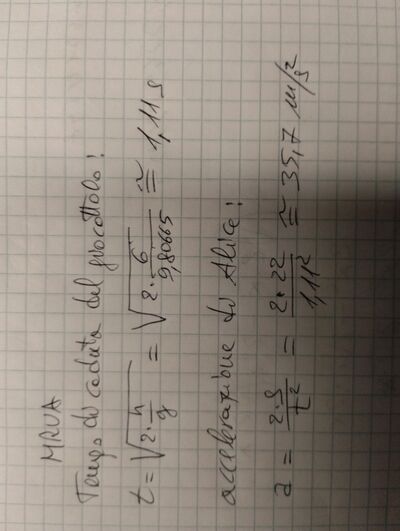 MRUA
Tempo di caduta del giocattolo:
t = √(2·h/g) = √(2·6/9,80665) ≅ 1,11 s
accelerazione di Alice:
a = 2·S/t² = 2·22/1,11² ≅ 35,7 m/s²